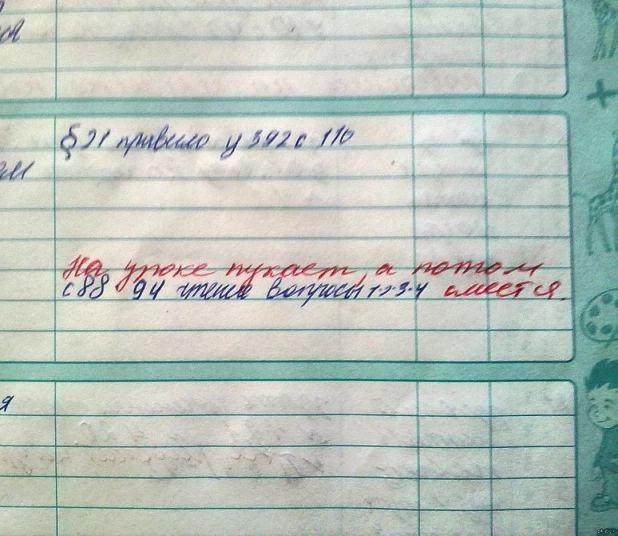 ся
§21 правило у 392 с 110
ем
На уроке пукает, а потом
с 88 94 чтение вопросы 1-2-3-4 смеется.
я